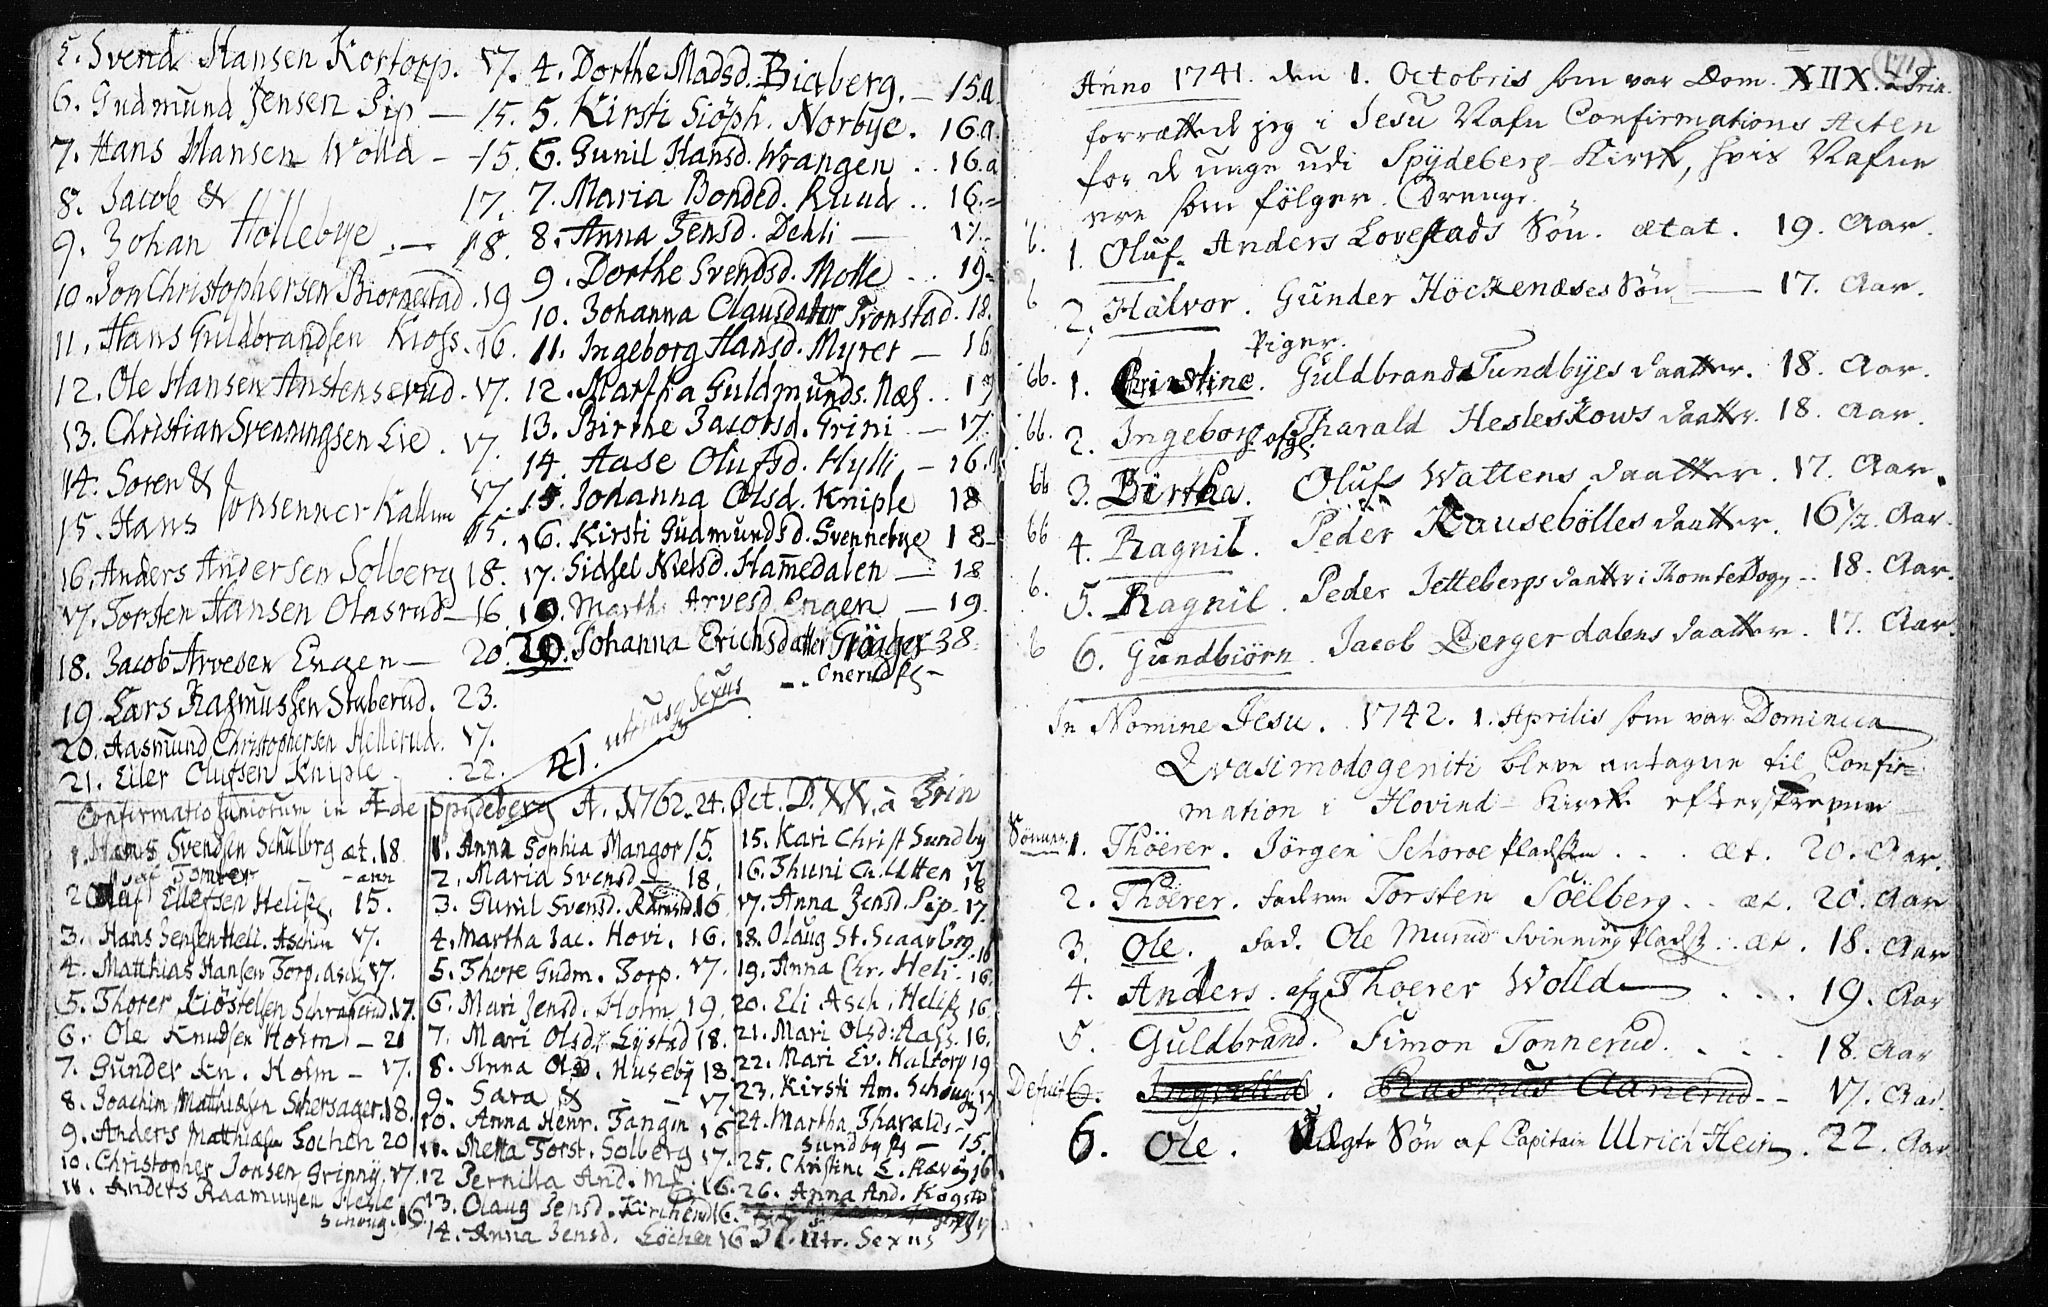 5. Svend Hansen Kortorp. 17.
6. Gudmund Jensen Sip — 15.
7. Hans Hansen Wolld - 15.
8. Jacob & 17.
9. Johan Hollebye. — 18.
10. Jon Christophersen Biornestad. 19
11. Hans Guldbrandsen Kioss. 16.
12. Ole Hansen Anstenserud. 17.
13. Christian Svenningsen Lie. 17.
14. Soren & 17.
15. Hans Jonsenner Kallum 15.
16. Anders Andersen Solberg 18.
17. Torsten Hansen Olasrud — 16.
18. Jacob Arvesen Engen — 20.
19. Lars Rasmussen Staberud. 23.
20. Aasmund Christophersen Hellerud. 17.
21. Eiler Olufsen Kniple. 22.
4. Dorthe Madsd. Biaberg. — 15.a
5. Kirsti Siöph. Norbye. 16.a.
6. Gunil Hansd. Wrangen .. 16.a
7. Maria Bonded. Ruud .. 16.
8. Anna Jensd. Dehli — 17.
9. Dorthe Svendsd. Molle .. 19.
10. Johanna Clausdatter Tronstad. 18.
11. Ingeborg Hansd. Myrer — 16
12. Martha Guldmunds. Næs .. 17
13. Birthe Jacobsd. Grini — 17.
14. Aase Olufsd. Hylli — 16.
15. Johanna Olsd. Kniple 18
16. Kirsti Gudmundsd. Svennebye 18
17. Sidsel Nielsd. Hamedalen — 18
Marthe Arvesd. Engen — 19.
20. Johanna Erichsdatter 38.
Onerud
41. utriusq Sexus
Confirmatio Juniorum in Æde Spydeberg A. 1762. 24. Oct. D. XX. à Trin
1. Hans Svendsen Schulerg æt. 18.
2. Oluf Ellertsen Heli 15.
3. Hans Jensen Heli. Aschim 17.
4. Matthias Hansen Torp. Asch 17.
5. Thorer Kiöstelsen 17.
6. Ole Knudsen Holm — 21
7. Gunder Kn. Holm — 17.
8. Joachim Matthiesen Schersager. 18.
9. Anders Matthiesen Lochen 20
10. Christopher Jonsen Grinny. 17.
11. Anders Raamunsen Hesle
Schoug. 16.
1. Anna Sophia Mangor 15.
2. Maria Svensd — 18.
3. Gunil Svensd. 16
4. Martha Jac. Hovi. 16.
5. Thore Gudm. Torp. 17.
6. Mari Jensd. Holm 19.
7. Mari Olsd. Lystad 18.
8. Anna Olsd. Huseby 18.
9. Sara & 17.
10. Anna Henr. Tangen 16
11. Metta Torst. Solberg 17.
12 Pernilla And. 16.
13. Olaug Jensd. Kircherud 16.
14. Anna Jensd. Löchen 16
15. Kari Christ Sundby
16. Thuni Ch. Utten 17
17. Anna Jensd. Sip. 17.
18. Olaug St. Scaarbrg. 16
19. Anna Chr. Heli. 16.
20. Eli Asch. Heli 16.
21. Mari Olsd. Aass. 16.
22. Mari Ev. Kaltorp 19
23. Kirsti Am. Schoug 17
24. Martha Tharalds
Sundby — 15.
25. Christine E. Rævoy 16
26. Anna And. Kogstd
37. utr. Sexus
171
Anno 1741. den 1. Octobris som var Dom. XIIX. à Trin.
forrættede jeg i Jesu Nafn Confirmations Acten
for de unge udi Spydeberg Kirke, hvis Nafne
ere som fölger. Drenge.
6. 1. Oluf. Anders Lovestads Sön. ætat. 19. Aar.
6 2. Halvor. Gunder Höckenæses Sön — 17. Aar.
Piger.
66. 1. Christine. Guldbrand Tundbyes daatter. 18. Aar.
66. 2. Ingeborg afg. Tharald Hesleskows daatter. 18. Aar.
66 3. Birtha. Oluf Wattens daatter. 17. Aar.
66 4. Ragnil. Peder Kausebölles daatter. 16 1/2. Aar.
6. 5. Ragnil. Peder Jettebergs daatter i 18. Aar.
6 6. Gundbiörn. Jacob Bergerdalens daatter. 17. Aar.
In Nomine Jesu. 1742. 1. Aprilis som var Dominica
Qvasimodogeniti bleve antagne til Confir=
mation i Hovind Kirke efterskrevne
Sönner. 1. Thöerer. Jörgen Schoroe ... æt. 20. Aar.
2. Thöerer. Faderen Torsten Söelberg .. æt. 20. Aar
3. Ole. Fad. Ole Murud Svinning .. æt. 18. Aar
4. Anders. afg Thoerer Wolld — 19. Aar
5. Guldbrand. Simon Tonnerud. 18. Aar
6. Rasmus Aanerud -- 17. Aar.
6. Ole. Sön af Capitain Ulrich Hein. 22. Aar